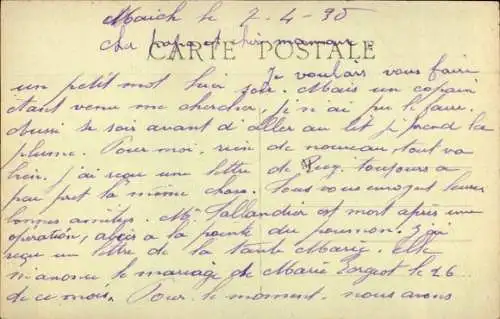 Maich le 7-4-30
cher papa et chère maman.
CARTE POSTALE
Je voulais vous faire
un petit mot hier soir. Mais un copain
étant venu me chercher, j'n'ai pu le faire.
Aussi ce soir avant d'aller au lit j'prend la
plume. Pour moi, rien de nouveau, tout va
bien. j'ai reçu une lettre de toujours a
peu pret la même chose. Tous vous envoyent leurs
bonnes amitiés. Mr Sallandier est mort après une
opération, abcès a la pointe du poumon. J'ai
reçu un lettre de la tante Marie. Elle
m'anonce le mariage de Marie le 26
de ce mois. Pour le moment, nous avons